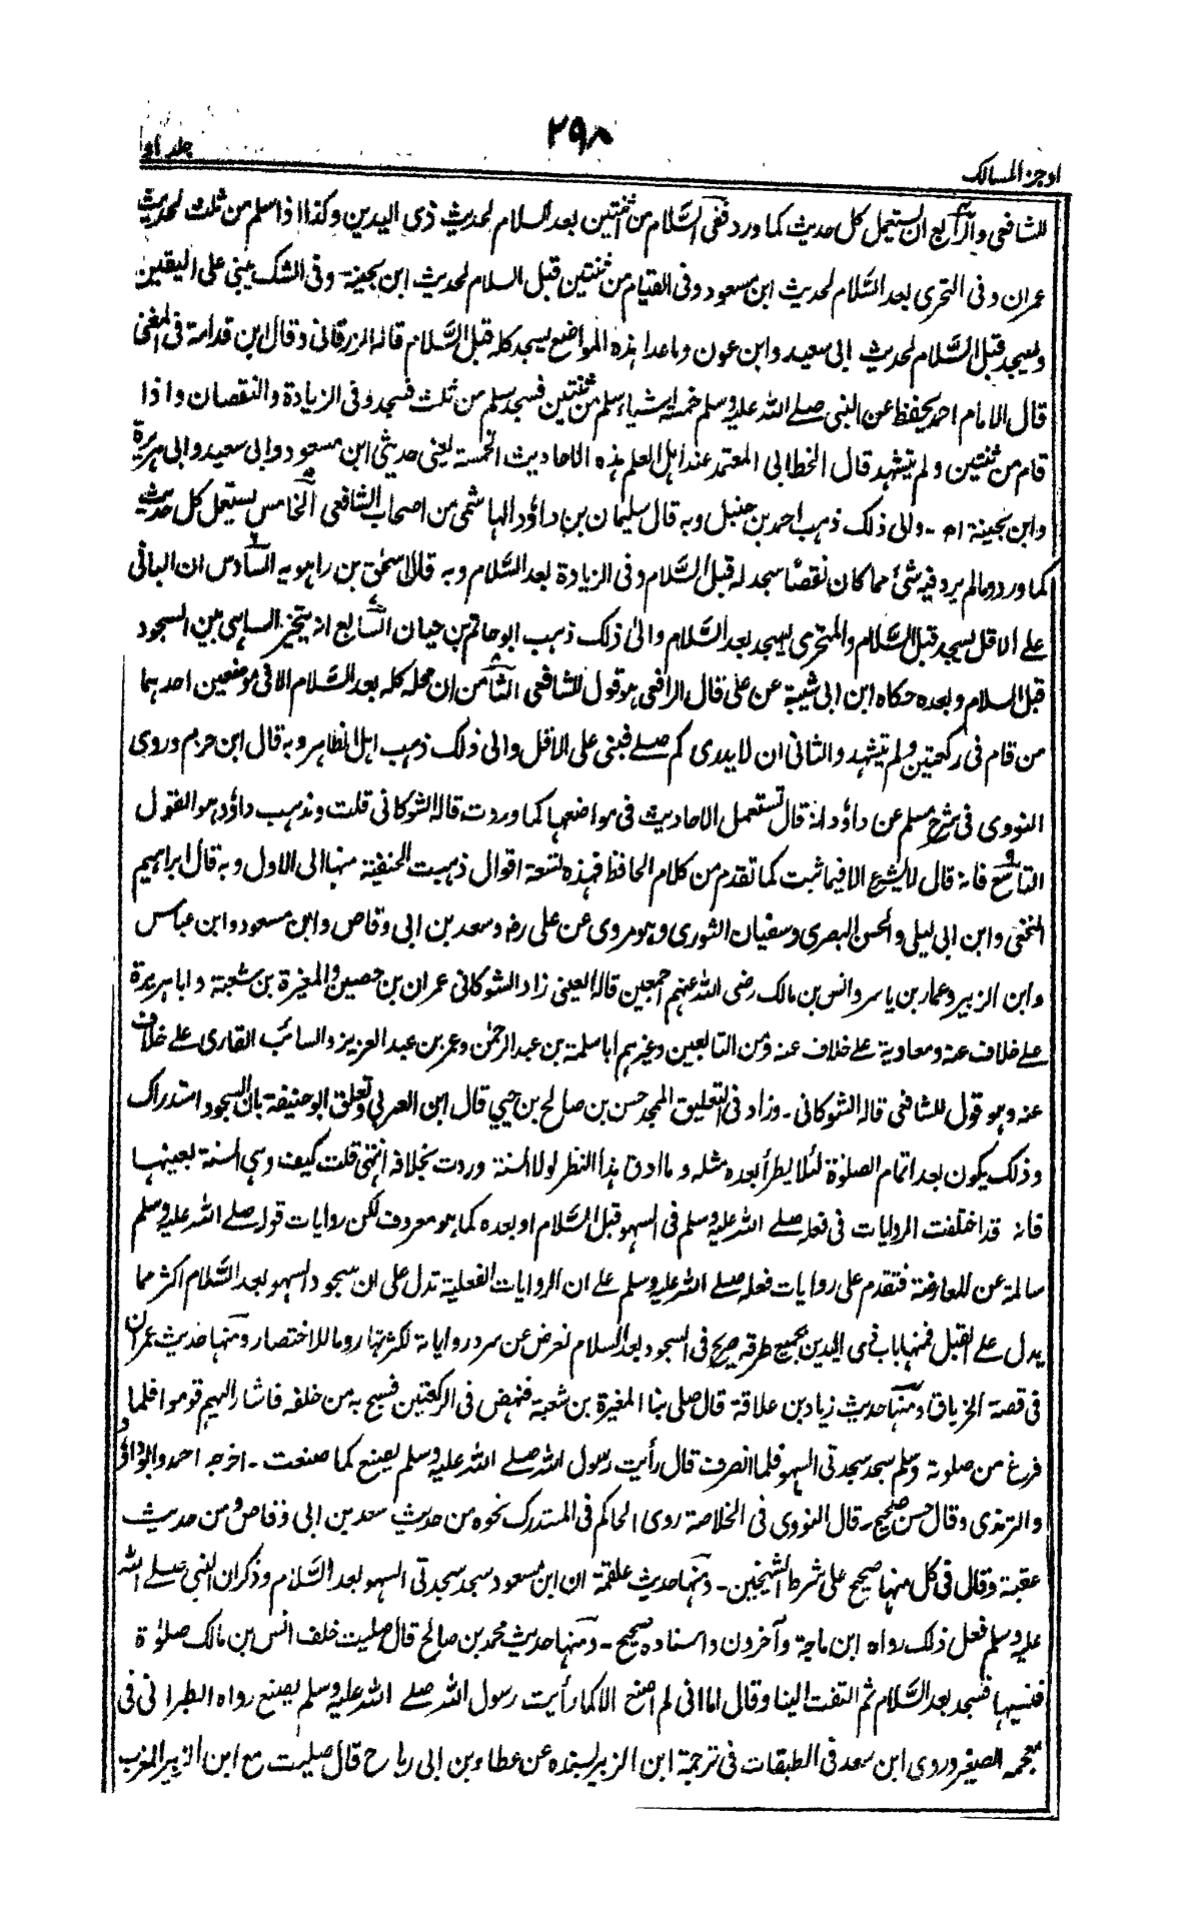 ۲۹۸
جلد اول
اوجز المسالک
للشافعی والرابع ان یستعمل کل حدیث کما ورد ففی السَّلام من ثنتین بعد السلام لحدیث ذی الیدین وکذا اذا سلم من ثلث لحدیث
عمران وفی التحری بعد السَّلام لحدیث ابن مسعود وفی القیام من ثنتین قبل السلام لحدیث ابن بحینة۔ وفی الشک یبنی علی الیقین
ویسجد قبل السَّلام لحدیث ابی سعید وابن عوف وماعدا ہذہ المواضع یسجد کله قبل السَّلام قاله الزرقانی وقال ابن قدامة فی المغنی
قال الامام احمد یحفظ عن النبی صلے اللہ علیہ وسلم خمسة اشیاء سلم من ثنتین فسجد سلم من ثلث فسجد وفی الزیادة والنقصان واذا
قام من ثنتین ولم یتشہد قال الخطابی المعتمد عند اہل العلم ہذہ الاحادیث الخمسة یعنی حدیثی ابن مسعود وابی سعید وابی ہریرة
وابن بحینة اھ۔ والی ذلک ذہب احمد بن حنبل وبه قال سلیمان بن داؤد الہاشمی من اصحاب الشافعی الخامس یستعمل کل حدیث
کما ورد ومالم یرد فیه شیٔ مما کان نقصًا سجد له قبل السَّلام وفی الزیادة بعد السَّلام وبه قال اسحٰق بن راہویه السادس ان البانی
علی الاقل یسجد قبل السَّلام والمتحری یسجد بعد السَّلام والیٰ ذلک ذہب ابو حاتم بن حیان السابع انه یتخیر الساہی بین السجود
قبل السلام وبعدہ حکاه ابن ابی شیبة عن علی قال الرافعی ہو قول للشافعی الثامن ان محله کله بعد السَّلام الا فی موضعین احدہما
من قام فی رکعتین ولم یتشہد والثانی ان لا یدری کم صلے فبنی علی الاقل والی ذلک ذہب اہل الظاہر وبه قال ابن حزم وروی
النووی فی شرح مسلم عن داؤد انه قال تستعمل الاحادیث فی مواضعہا کما وردت قاله الشوکانی قلت ومذہب داؤد ہو القول
التاسع فانه قال لا یشرع الا فیما ثبت کما تقدم من کلام الحافظ فہذہ تسعة اقوال ذہبت الحنفیة منہا الی الاول وبه قال ابراہیم
النخعی وابن ابی لیلی والحسن البصری وسفیان الثوری وہو مروی عن علی رضہ وسعد بن ابی وقاص وابن مسعود وابن عباس
وابن الزبیر وعمار بن یاسر وانس بن مالک رضی اللہ عنہم اجمعین قاله العینی زاد الشوکانی عمران بن حصین والمغیرة بن شعبة وابا ہریرة
علے خلاف عنه ومعاویة علے خلاف عنه ومن التابعین وغیرہم ابا سلمة بن عبد الرحمٰن وعمر بن عبد العزیز والسائب القاری علے خلاف
عنه وہو قول للشافعی قاله الشوکانی۔ وزاد فی التعلیق الممجد حسن بن صالح بن حیی قال ابن العربی وتعلق ابو حنیفة بان السجود استدراک
وذلک یکون بعد اتمام الصلوٰة لئلا یطرأ بعدہ مثله وما ادق ہذا النظر لولا السنة وردت بخلافه انتہی قلت کیف وہی السنة بعینہا
فانه قد اختلفت الروایات فی فعله صلے اللہ علیہ وسلم فی السہو قبل السَّلام او بعدہ کما ہو معروف لکن روایات قوله صلے اللہ علیہ وسلم
سالمة عن المعارضة فتقدم علی روایات فعله صلے اللہ علیہ وسلم علے ان الروایات الفعلیة تدل علی ان سجود السہو بعد السَّلام اکثر مما
یدل علے القبل فمنہا باب ذی الیدین بجمیع طرقه صریح فی السجود بعد السلام نعرض عن سرد روایاته لکثرتہا روما للاختصار ومنہا حدیث عمران
فی قصة الخرباق ومنہا حدیث زیاد بن علاقة قال صلی بنا المغیرة بن شعبة فنہض فی الرکعتین فسبح به من خلفه فاشار الیہم قوموا فلما
فرغ من صلوته وسلم سجد سجدتی السہو فلما انصرف قال رأیت رسول اللہ صلے اللہ علیہ وسلم یصنع کما صنعت۔ اخرجه احمد وابوداؤد
والترمذی وقال حسن صحیح۔ قال النووی فی الخلاصة روی الحاکم فی المستدرک نحوه من حدیث سعد بن ابی وقاص ومن حدیث
عقبة وقال فی کل منہما صحیح علی شرط الشیخین۔ ومنہا حدیث علقمة ان ابن مسعود سجد سجدتی السہو بعد السَّلام وذکر ان النبی صلے اللہ
علیہ وسلم فعل ذلک رواہ ابن ماجة وآخرون واسنادہ صحیح۔ ومنہا حدیث محمد بن صالح قال صلیت خلف انس بن مالک صلوٰة
فنسیہا فسجد بعد السَّلام ثم التفت الینا وقال اما انی لم اصنع الا کما رأیت رسول اللہ صلے اللہ علیہ وسلم یصنع رواہ الطبرانی فی
معجمه الصغیر وروی ابن سعد فی الطبقات فی ترجمة ابن الزبیر بسندہ عن عطاء بن ابی رباح قال صلیت مع ابن الزبیر المغرب